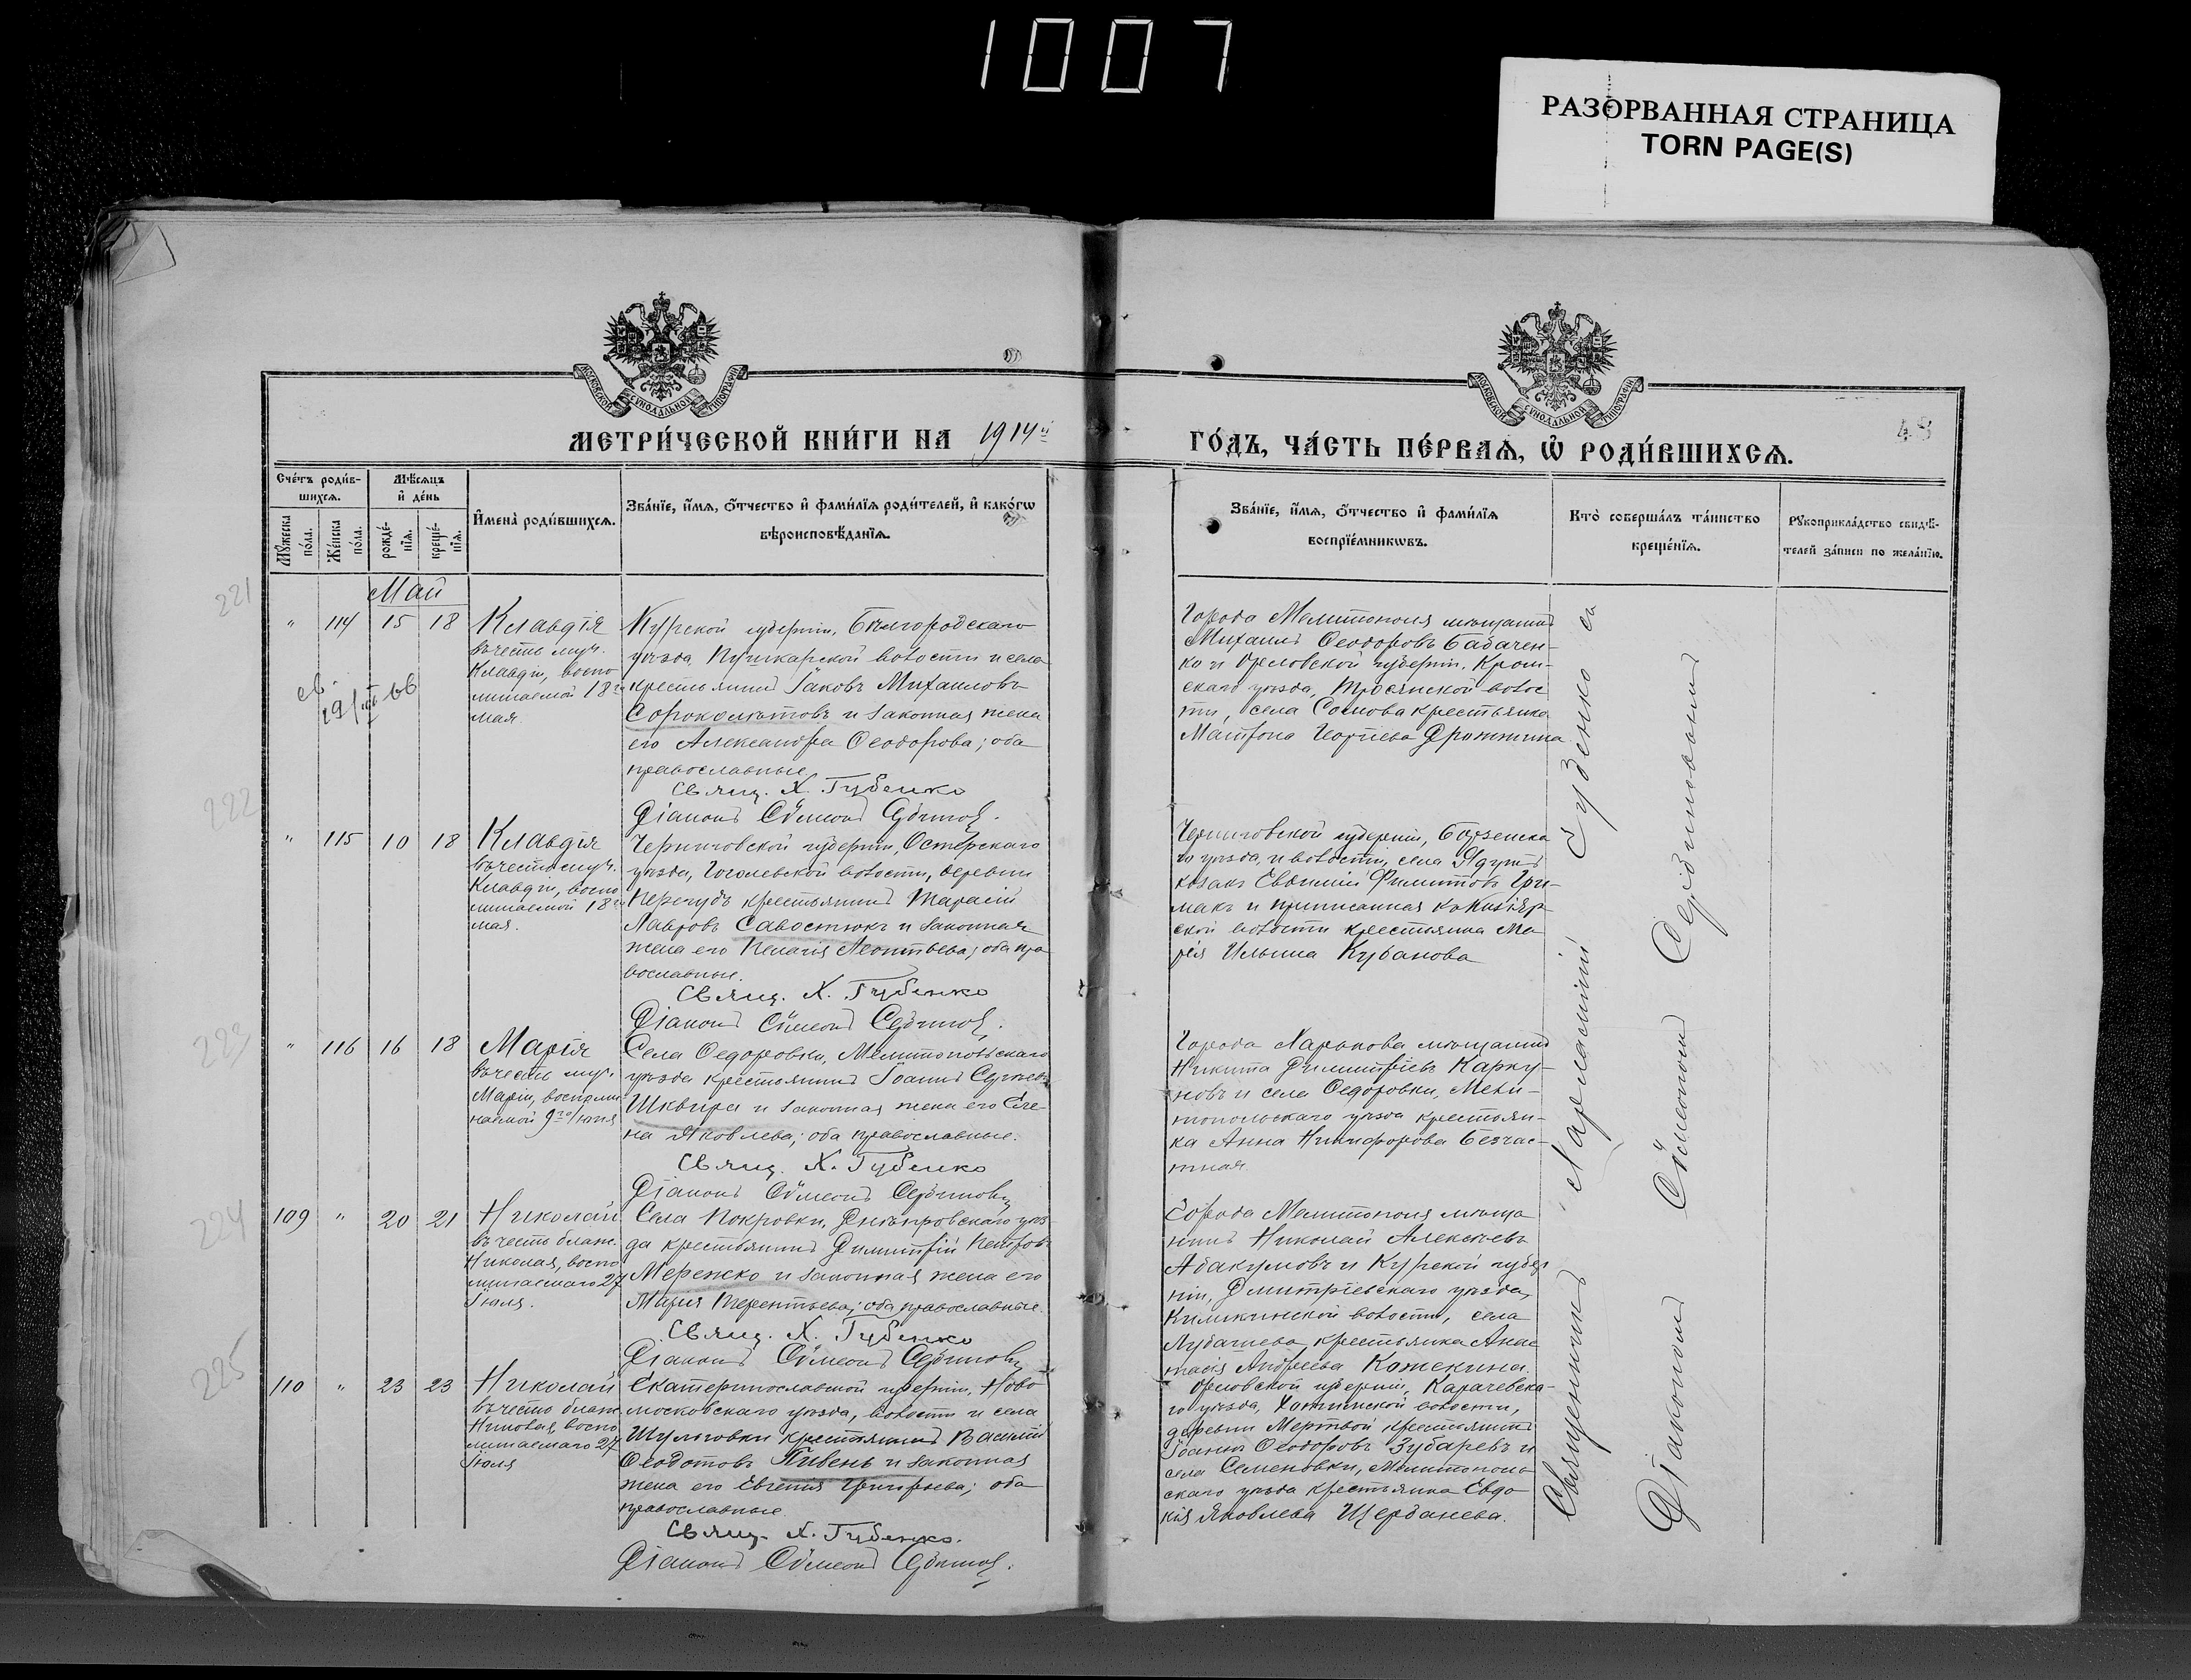 1007
РАЗОРВАННАЯ СТРАНИЦА
TORN PAGE(S)
МОСКОВСКОЙ СУНОДАЛЬНОЙ ТИПОГРАФІИ
МОСКОВСКОЙ СУНОДАЛЬНОЙ ТИПОГРАФІИ
МЕТРИ́ЧЕСКОЙ КНИ́ГИ НА 1914й
ГО́ДЪ, ЧА́СТЬ ПЕ́РВАѦ, Ѡ҆ РОДИ́ВШИХСѦ.
48
Сче́тъ роди́в-
шихсѧ.
Мꙋ́жеска по́ла.
Же́нска по́ла.
Мѣ́сѧцъ
и҆ де́нь
рожде́-
нїѧ.
креще́-
нїѧ.
И҆мена̀ роди́вшихсѧ.
Зва́нїе, и҆́мѧ, ѻ҆́тчество и҆ фами́лїѧ роди́телей, и҆ како́гѡ
вѣроисповѣ́данїѧ.
Зва́нїе, и҆́мѧ, ѻ҆́тчество и҆ фами́лїѧ
воспрїе́мникѡвъ.
Кто̀ соверша́лъ та́инство
креще́нїѧ.
Рꙋкоприкла́дство свидѣ́-
телей за́писи по жела́нїю.
Май
221
" 114 15 18
Клавдія
въ честь муч.
Клавдіи, воспо
минаемой 18го
мая.
Курской губерніи, Бѣлгородскаго
уѣзда, Пушкарской волости и села
крестьянинъ Іаковъ Михаиловъ
Сороколѣтовъ и законная жена
его Александра Ѳеодорова; оба
православные.
Свящ. Х. Губенко
Діаконъ Сѵмеонъ
Города Мелитополя мѣщанинъ
Михаилъ Ѳеодоровъ Бабачен-
ко и Орловской губерніи, Кром-
скаго уѣзда, Тросянской волос
ти, села Сомова крестьянка
Матрона Георгіева Дрожжина
222
" 115 10 18
Клавдія
въ честь муч.
Клавдіи, воспо
минаемой 18го
мая.
Черниговской губерніи, Остерскаго
уѣзда, Гоголевской волости, деревни
крестьянинъ Тарасій
Лавровъ Савостюкъ и законная
жена его Пелагія Леонтьева; оба пра
вославные.
Свящ. Х. Губенко
Діаконъ Сѵмеонъ
Черниговской губерніи, Борзенска
го уѣзда, и волости, села Ядутъ
козакъ Евѳимій Филиповъ Гри-
макъ и приписанная къ Кизіяр
ской волости крестьянка Ма
рія Ильина Кубанова
223
" 116 16 18
Марія
въ честь муч.
Маріи, воспоми
наемой 9го Іюня
Села Ѳедоровки, Мелитопольскаго
уѣзда крестьянинъ Іоаннъ Сергѣевъ
Шквыря и законная жена его Еле-
на Яковлева; оба православные.
Свящ. Х. Губенко
Діаконъ Сѵмеонъ
Города Харькова мѣщанинъ
Никита Димитріевъ Карку-
новъ и села Ѳедоровки, Мели-
топольскаго уѣзда крестьян-
ка Анна Никифорова Безчас-
тная.
224
109 " 20 21
Николай
въ честь блаж.
Николая, воспо
минаемаго 27
Іюля.
Села Покровки, Днѣпровскаго уѣз-
да крестьянинъ Димитрій Петровъ
Мережко и законная жена его
Марія Терентьева; оба православные.
Свящ. Х. Губенко
Діаконъ Сѵмеонъ
Города Мелитополя мѣща
нинъ Николай Алексѣевъ
Абакумовъ и Курской губер
ніи, Дмитріевскаго уѣзда,
волости, села
крестьянка Анас
тасія Андреева Кожекина.
225
110 " 23 23
Николай
въ честь блаж.
Николая, воспо
минаемаго 27
Іюля
Екатеринославской губерніи, Ново
московскаго уѣзда, волости и села
Шульговки крестьянинъ Василій
Ѳеодотовъ Пивень и законная
жена его Евгенія Григорьева; оба
православные.
Свящ. Х. Губенко.
Діаконъ Сѵмеонъ
Орловской губерніи, Карачевска-
го уѣзда, волости,
деревни Мертвой крестьянинъ
Іоаннъ Ѳеодоровъ Зубаревъ и
села Семеновки, Мелитополь
скаго уѣзда крестьянка Евдо
кія Яковлева Щербанева.
Священникъ Харлампій Губенко съ
Діакономъ Сѵмеономъ